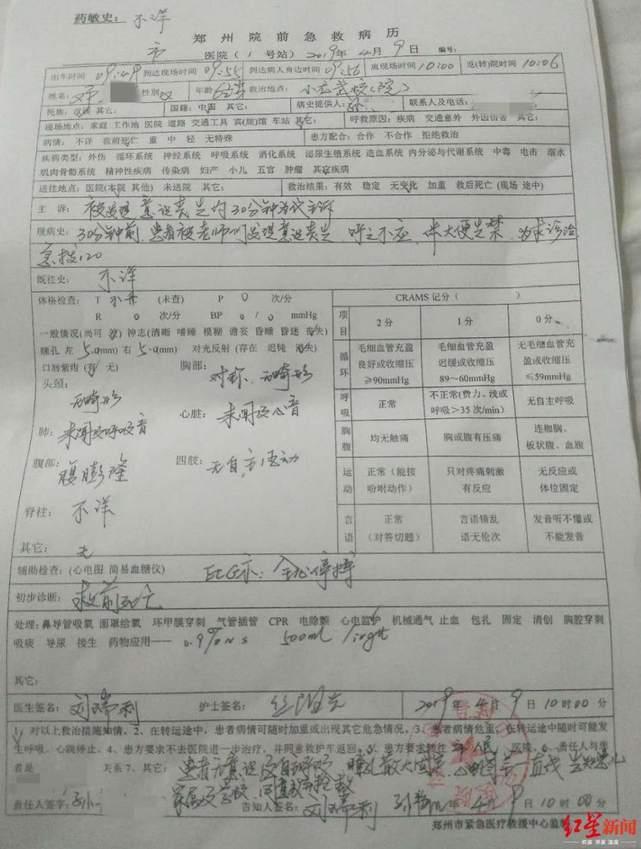 药敏史：不详
郑州院前急救病历
市 医院（1号站）2019年4月9日 编号：
出车时间 09:49 到达现场时间 09:55 到达病人身边时间 09:56 离现场时间 10:00 返(转)院时间 10:06
姓名： 性别 年龄 救治地点：
民族：汉族 其它： 国籍：中国 其它： 病史提供人： 联系人及电话：
现场地点：家庭 工作地 医院 道路 交通工具 宾(旅)馆 车站 其它： 呼救原因：疾病 交通意外 外因伤害 其它：
病情：不详 救前死亡 重 中 轻 无特殊 患方配合：合作 不合作 拒绝救治
疾病类型：外伤 循环系统 神经系统 呼吸系统 消化系统 泌尿生殖系统 造血系统 内分泌与代谢系统 中毒 电击 溺水
肌肉骨骼系统 精神性疾病 传染病 妇产 小儿 五官 肿瘤 其它疾病
送往地点：医院(本院 其他) 未送院 其它： 救治结果：有效 稳定 无变化 加重 救后死亡 (现场 途中)
主 诉：被发现意识丧失约30分钟为代主诉
现病史：30分钟前，患者被老师们发现意识丧失，呼之不应，伴大便失禁，为求诊治
急拨120
既往史：不详
体格检查：T 不升 (未查) P 0 次/分
R 0 次/分 BP 0/0 mmHg
一般情况(尚可 差) 神志(清晰 嗜睡 模糊 谵妄 昏睡 昏迷 丧失)
瞳孔 左 5.0(mm) 右 5.0(mm) 对光反射 (存在 迟钝 消失)
口唇紫绀 (有 无) 胸部：对称，无畸形
头颈：无畸形
肺：未闻及呼吸音 心脏：未闻及心音
腹部：腹膨隆 四肢：无自主运动
脊柱：不详
其它：无
CRAMS 记分（ ）
项目 2分 1分 0分
循环 毛细血管充盈良好或收缩压≥90mmHg 毛细血管充盈迟缓或收缩压89～60mmHg 无毛细血管充盈或收缩压≤59mmHg
呼吸 正常 不正常(费力、浅或呼吸>35次/min) 无自主呼吸
胸腹 均无触痛 胸或腹有压痛 连枷胸、板状腹、血腹
运动 正常（能按吩咐动作） 只对疼痛刺激有反应 无反应或体位固定
言语 正常（对答切题） 言语错乱语无伦次 发音听不懂或不能发音
辅助检查：(心电图 简易血糖仪) ECG示：全心停搏
初步诊断：救前死亡
处理：鼻导管吸氧 面罩给氧 环甲膜穿刺 气管插管 CPR 电除颤 心电监护 机械通气 止血 包扎 固定 清创 胸腔穿刺
吸痰 导尿 接生 药物应用—— 0.9% NS 500ml
医生签名： 护士签名： 2019年4月9日10时00分
1、对以上救治措施知情。2、在转运途中，患者病情可随时加重或出现其它危急情况。3、患者病情危重，在转运途中随时可能发
生呼吸、心跳停止。4、患方要求不去医院进一步治疗，并同意救护车返回。5、患方要求转往 医院。6、责任人与患
者是 关系 7、患者无意识及自主呼吸，瞳孔散大固定，心电图示一直线
责任人签字： 告知人签名： 年4月9日10时00分
郑州市紧急医疗救援中心监制
红星新闻